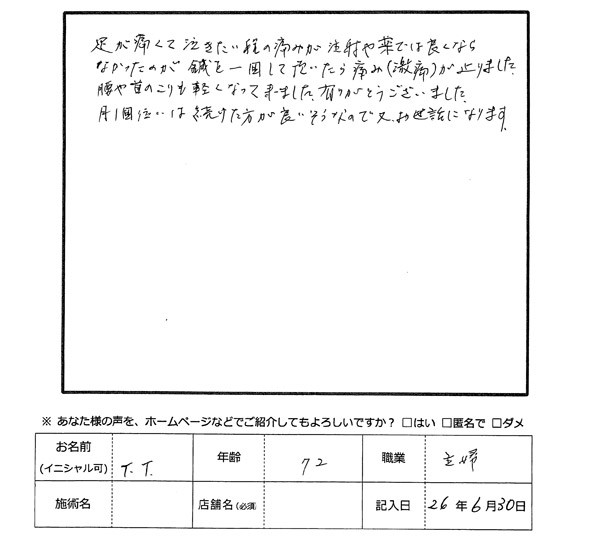 足が痛くて泣きたい程の痛みが注射や薬では良くなら
なかったのが鍼を一回して頂いたら痛み(激痛)が止りました。
腰や首のこりも軽くなって来ました。有りがとうございました。
月1回位いは続けた方が良いそうなので又、お世話になります。
※ あなた様の声を、ホームページなどでご紹介してもよろしいですか？ □はい □匿名で □ダメ
お名前 (イニシャル可) T. T. 年齢 72 職業 主婦
施術名 店舗名(必須) 記入日 26年6月30日